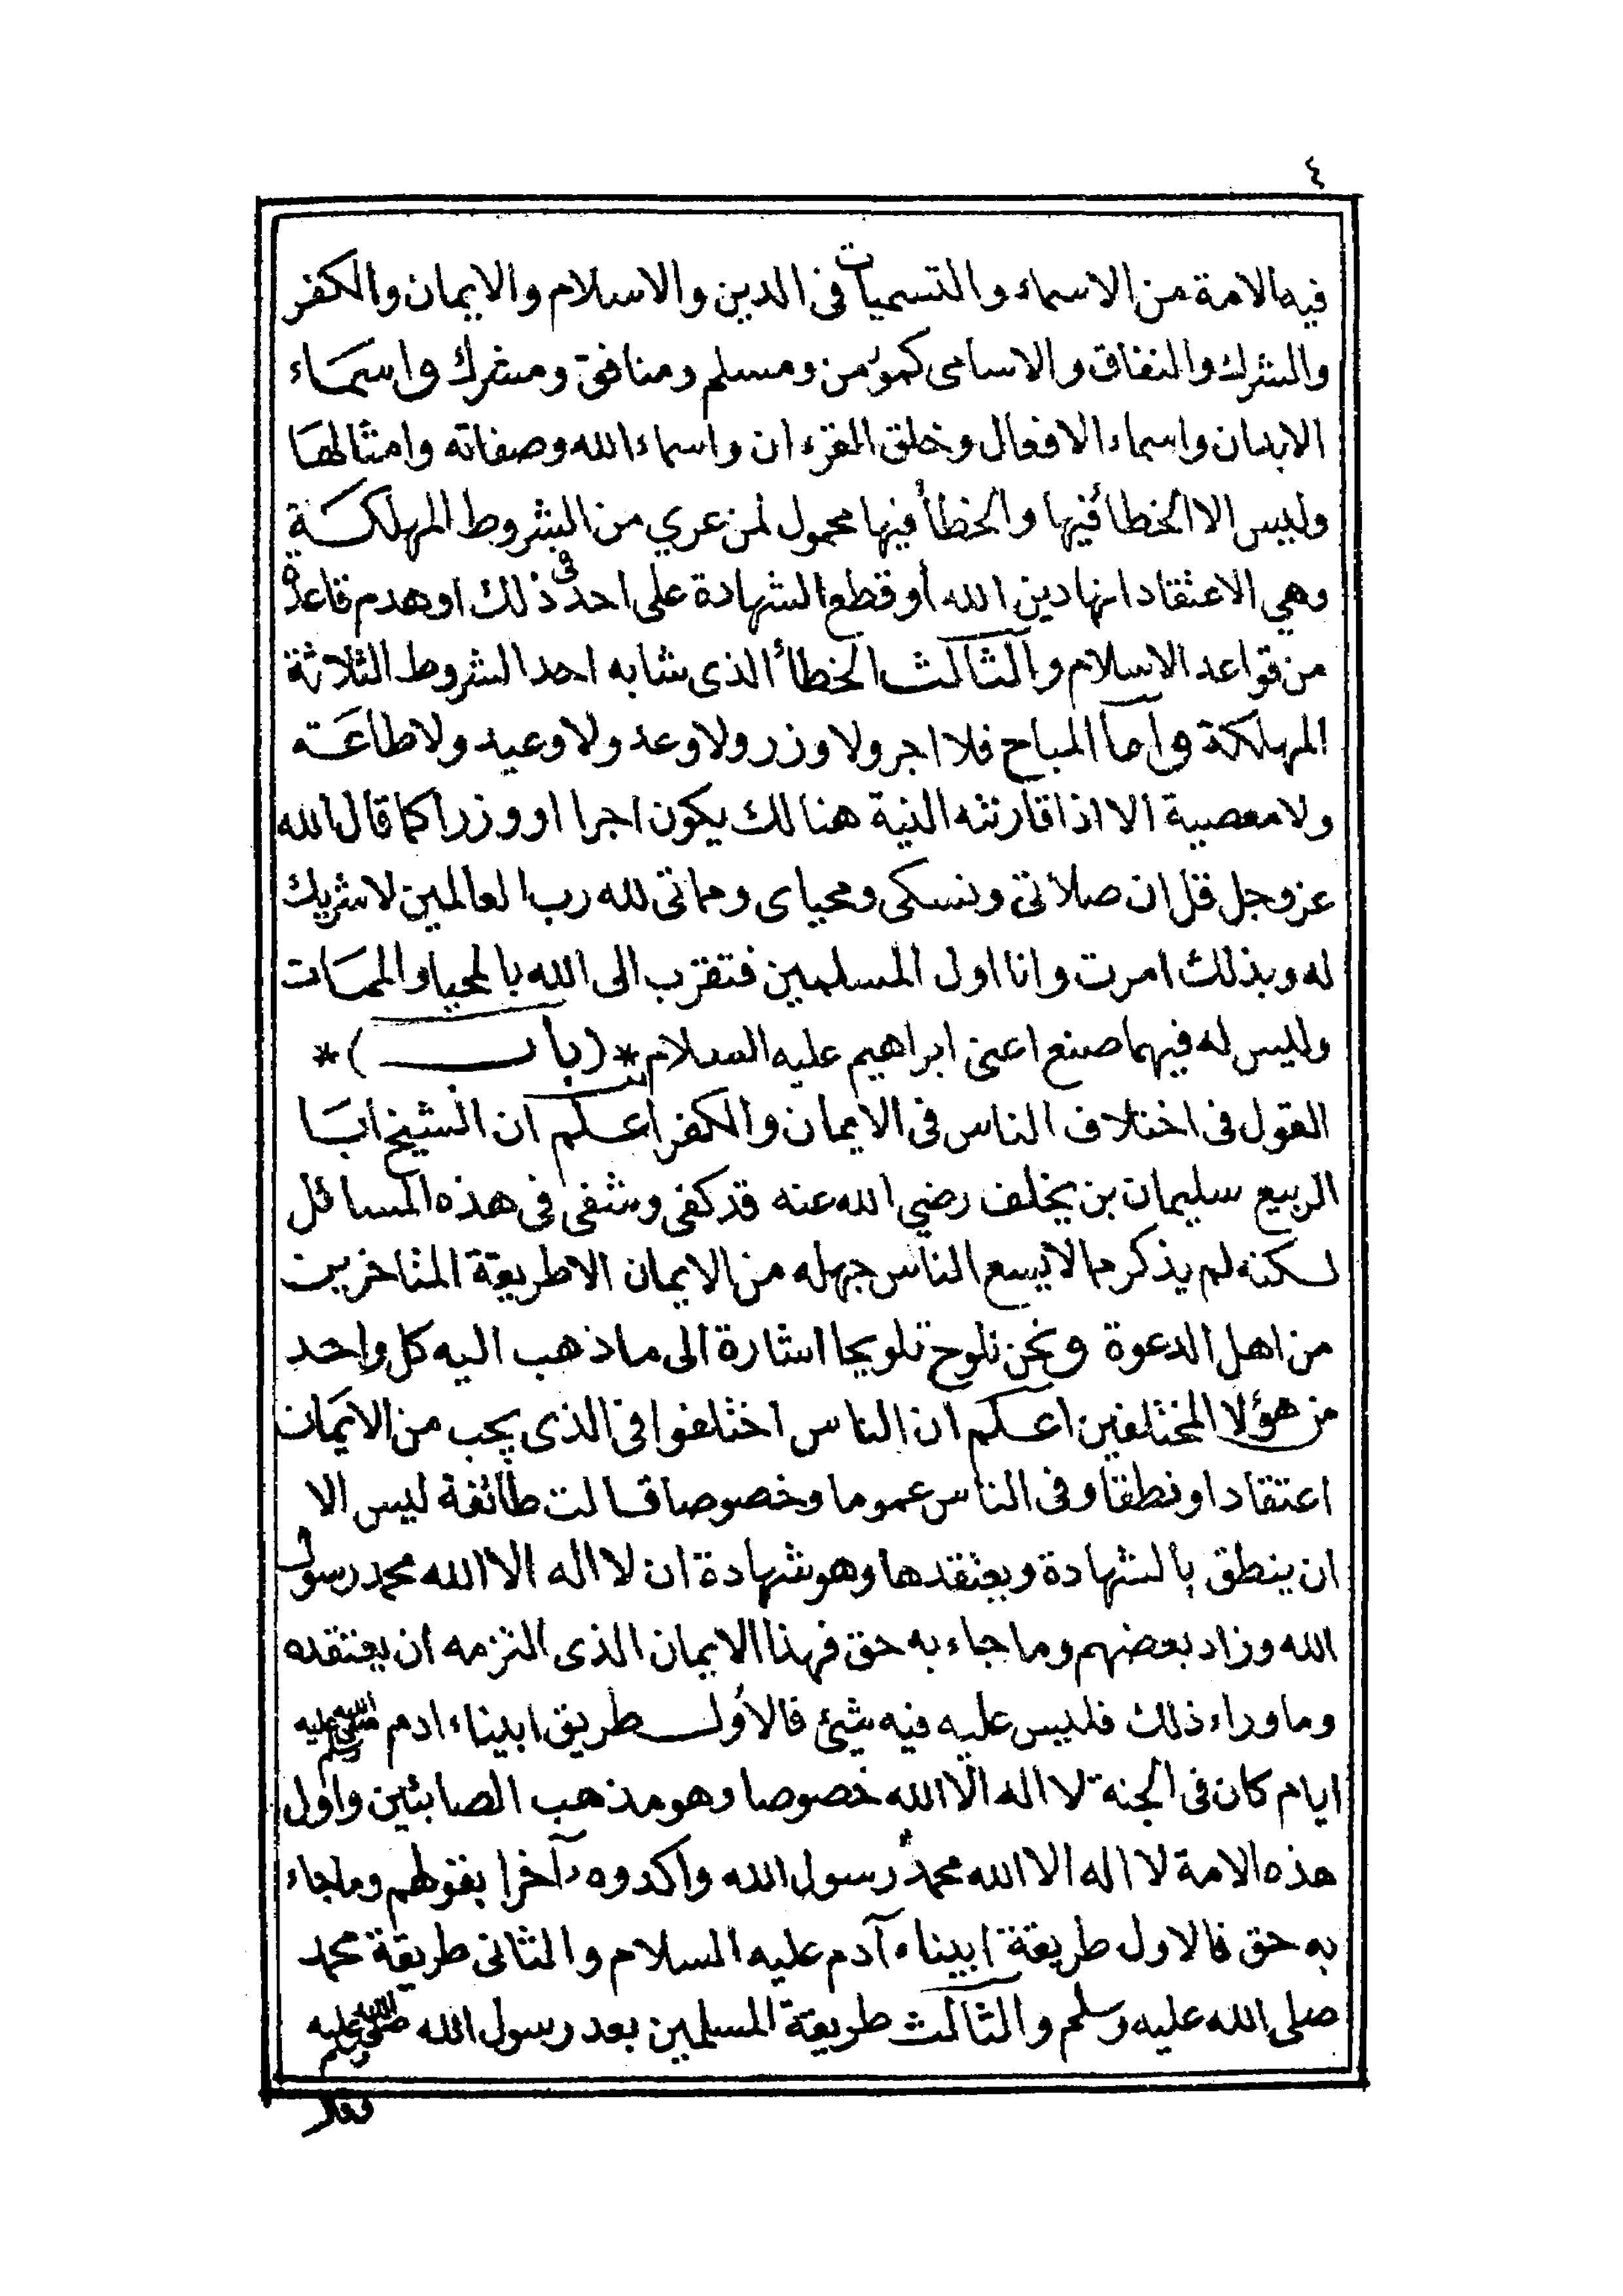 ٤
فيه الامة من الاسماء والتسميات فى الدين والاسلام والايمان والكفر
والشرك والنفاق والاسامى كمؤمن ومسلم ومنافق ومشرك واسماء
الابدان واسماء الافعال وخلق القرءان واسماء الله وصفاته وامثالها
وليس الا الخطأ فيها والخطأ فيها محمول لمن عري من الشروط المهلكة
وهي الاعتقاد انها دين الله أو قطع الشهادة على احد فى ذلك او هدم قاعدة
من قواعد الاسلام والثالث الخطأ الذى شابه احد الشروط الثلاثة
المهلكة وأما المباح فلا اجر ولا وزر ولا وعد ولا وعيد ولا طاعة
ولا معصية الا اذا قارنته النية هنالك يكون اجرا او وزرا كما قال الله
عز وجل قل ان صلاتى ونسكى ومحياى ومماتى لله رب العالمين لا شريك
له وبذلك امرت وانا اول المسلمين فتقرب الى الله بالمحيا والممات
وليس له فيهما صنع اعنى ابراهيم عليه السلام *(باب)*
القول فى اختلاف الناس فى الايمان والكفر اعلم ان الشيخ ابا
الربيع سليمان بن يخلف رضي الله عنه قد كفى وشفى فى هذه المسائل
لكنه لم يذكر مما لا يسع الناس جهله من الايمان الا طريقة المتاخرين
من اهل الدعوة ونحن نلوح تلويحا اشارة الى ما ذهب اليه كل واحد
من هؤلا المختلفين اعلم ان الناس اختلفوا فى الذى يجب من الايمان
اعتقادا ونطقا وفى الناس عموما وخصوصا قالت طائفة ليس الا
ان ينطق بالشهادة ويعتقدها وهو شهادة ان لا اله الا الله محمد رسول
الله وزاد بعضهم وما جاء به حق فهذا الايمان الذى التزمه ان يعتقده
وما وراء ذلك فليس عليه فيه شئ فالأول طريق ابيناء ادم صلى الله عليه وسلم
ايام كان فى الجنة لا اله الا الله خصوصا وهو مذهب الصابئين واول
هذه الامة لا اله الا الله محمد رسول الله واكدوه ءآخرا بقولهم وما جاء
به حق فالاول طريقة ابيناء آدم عليه السلام والثانى طريقة محمد
صلى الله عليه وسلم والثالث طريقة المسلمين بعد رسول الله صلى الله عليه وسلم